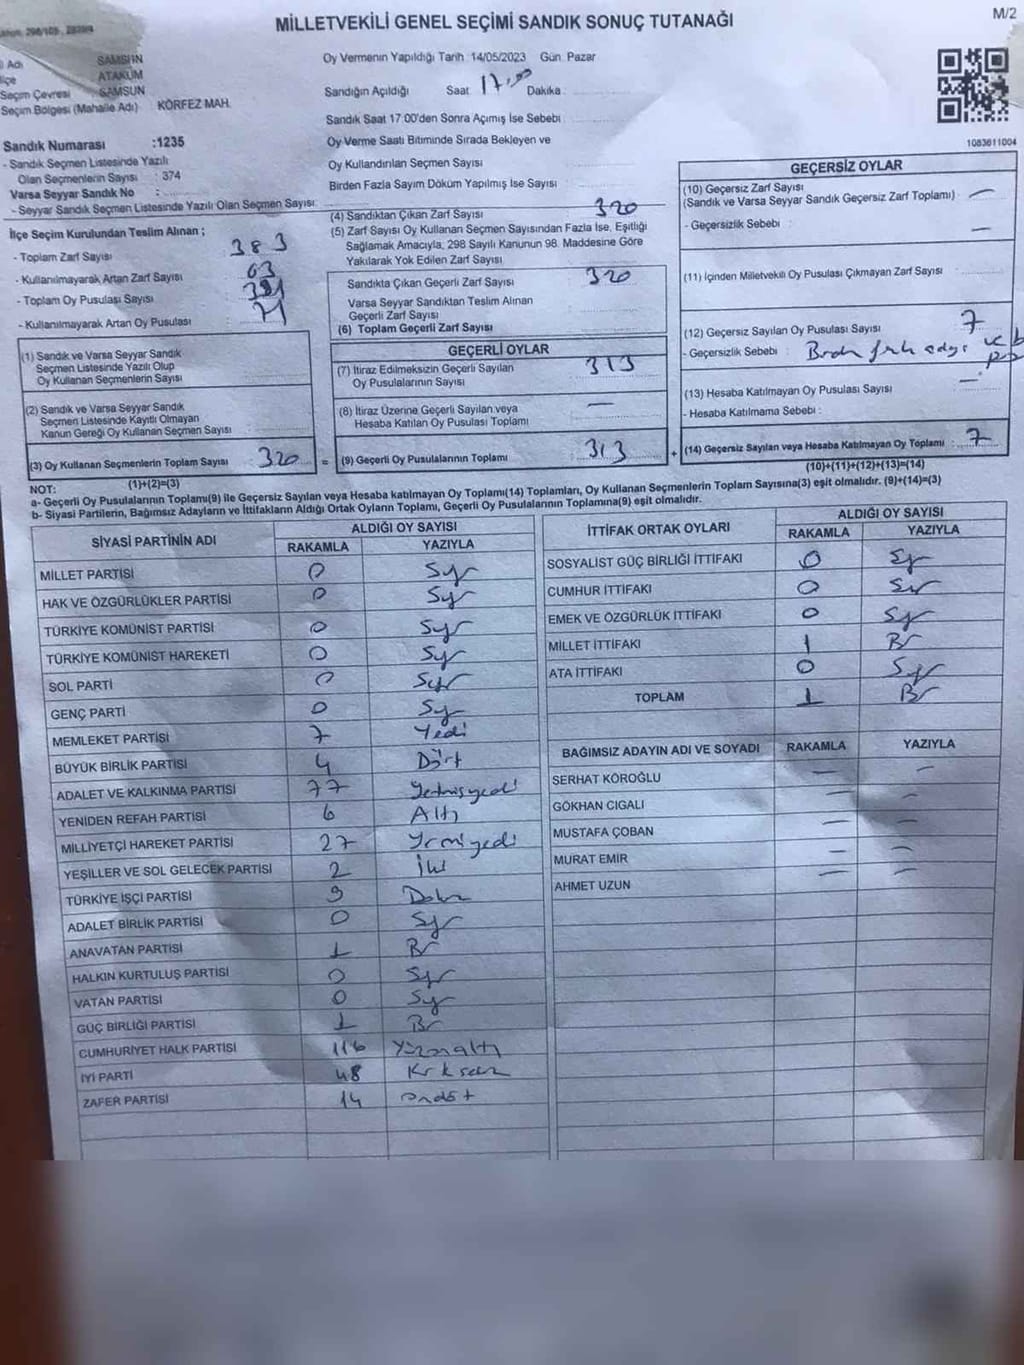 MİLLETVEKİLİ GENEL SEÇİMİ SANDIK SONUÇ TUTANAĞI
M/2
SAMSUN
ATAKUM
Seçim Çevresi SAMSUN
Seçim Bölgesi (Mahalle Adı) KÖRFEZ MAH.
Oy Vermenin Yapıldığı Tarih 14/05/2023 Gün Pazar
Sandığın Açıldığı Saat 17:00 Dakika
Sandık Saat 17:00'den Sonra Açımış İse Sebebi
Oy Verme Saati Bitiminde Sırada Bekleyen ve
Oy Kullandırılan Seçmen Sayısı
Birden Fazla Sayım Döküm Yapılmış İse Sayısı
Sandık Numarası :1235
- Sandık Seçmen Listesinde Yazılı
Olan Seçmenlerin Sayısı : 374
Varsa Seyyar Sandık No :
- Seyyar Sandık Seçmen Listesinde Yazılı Olan Seçmen Sayısı:
İlçe Seçim Kurulundan Teslim Alınan ;
- Toplam Zarf Sayısı 383
- Kullanılmayarak Artan Zarf Sayısı 63
- Toplam Oy Pusulası Sayısı 391
- Kullanılmayarak Artan Oy Pusulası 71
(1) Sandık ve Varsa Seyyar Sandık
Seçmen Listesinde Yazılı Olup
Oy Kullanan Seçmenlerin Sayısı
(2) Sandık ve Varsa Seyyar Sandık
Seçmen Listesinde Kayıtlı Olmayan
Kanun Gereği Oy Kullanan Seçmen Sayısı
(3) Oy Kullanan Seçmenlerin Toplam Sayısı 320
(1)+(2)=(3)
(4) Sandıktan Çıkan Zarf Sayısı 320
(5) Zarf Sayısı Oy Kullanan Seçmen Sayısından Fazla İse, Eşitliği
Sağlamak Amacıyla, 298 Sayılı Kanunun 98. Maddesine Göre
Yakılarak Yok Edilen Zarf Sayısı
Sandıkta Çıkan Geçerli Zarf Sayısı 320
Varsa Seyyar Sandıktan Teslim Alınan
Geçerli Zarf Sayısı
(6) Toplam Geçerli Zarf Sayısı
GEÇERLİ OYLAR
(7) İtiraz Edilmeksizin Geçerli Sayılan
Oy Pusulalarının Sayısı 313
(8) İtiraz Üzerine Geçerli Sayılan veya
Hesaba Katılan Oy Pusulası Toplamı —
= (9) Geçerli Oy Pusulalarının Toplamı 313
1083611004
GEÇERSİZ OYLAR
(10) Geçersiz Zarf Sayısı
(Sandık ve Varsa Seyyar Sandık Geçersiz Zarf Toplamı) : —
- Geçersizlik Sebebi : —
(11) İçinden Milletvekili Oy Pusulası Çıkmayan Zarf Sayısı
(12) Geçersiz Sayılan Oy Pusulası Sayısı : 7
- Geçersizlik Sebebi :
(13) Hesaba Katılmayan Oy Pusulası Sayısı : —
- Hesaba Katılmama Sebebi :
+ (14) Geçersiz Sayılan veya Hesaba Katılmayan Oy Toplamı : 7
(10)+(11)+(12)+(13)=(14)
NOT:
a- Geçerli Oy Pusulalarının Toplamı(9) ile Geçersiz Sayılan veya Hesaba katılmayan Oy Toplamı(14) Toplamları, Oy Kullanan Seçmenlerin Toplam Sayısına(3) eşit olmalıdır. (9)+(14)=(3)
b- Siyasi Partilerin, Bağımsız Adayların ve İttifakların Aldığı Ortak Oyların Toplamı, Geçerli Oy Pusulalarının Toplamına(9) eşit olmalıdır.
SİYASİ PARTİNİN ADI ALDIĞI OY SAYISI
RAKAMLA YAZIYLA
MİLLET PARTİSİ 0 Sıfır
HAK VE ÖZGÜRLÜKLER PARTİSİ 0 Sıfır
TÜRKİYE KOMÜNİST PARTİSİ 0 Sıfır
TÜRKİYE KOMÜNİST HAREKETİ 0 Sıfır
SOL PARTİ 0 Sıfır
GENÇ PARTİ 0 Sıfır
MEMLEKET PARTİSİ 7 Yedi
BÜYÜK BİRLİK PARTİSİ 4 Dört
ADALET VE KALKINMA PARTİSİ 77 Yetmişyedi
YENİDEN REFAH PARTİSİ 6 Altı
MİLLİYETÇİ HAREKET PARTİSİ 27 Yirmiyedi
YEŞİLLER VE SOL GELECEK PARTİSİ 2 İki
TÜRKİYE İŞÇİ PARTİSİ 9 Dokuz
ADALET BİRLİK PARTİSİ 0 Sıfır
ANAVATAN PARTİSİ 1 Bir
HALKIN KURTULUŞ PARTİSİ 0 Sıfır
VATAN PARTİSİ 0 Sıfır
GÜÇ BİRLİĞİ PARTİSİ 1 Bir
CUMHURİYET HALK PARTİSİ 116 Yüzonaltı
İYİ PARTİ 48 Kırksekiz
ZAFER PARTİSİ 14 ondört
İTTİFAK ORTAK OYLARI ALDIĞI OY SAYISI
RAKAMLA YAZIYLA
SOSYALİST GÜÇ BİRLİĞİ İTTİFAKI 0 Sıfır
CUMHUR İTTİFAKI 0 Sıfır
EMEK VE ÖZGÜRLÜK İTTİFAKI 0 Sıfır
MİLLET İTTİFAKI 1 Bir
ATA İTTİFAKI 0 Sıfır
TOPLAM 1 Bir
BAĞIMSIZ ADAYIN ADI VE SOYADI RAKAMLA YAZIYLA
SERHAT KÖROĞLU — —
GÖKHAN CIGALI — —
MUSTAFA ÇOBAN — —
MURAT EMİR — —
AHMET UZUN — —